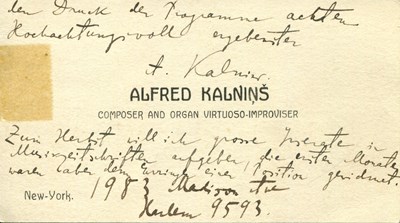 den Druck der Programme achten
Hochachtungsvoll ergebenster
A. Kalnins.
ALFRED KALNIŅŠ
COMPOSER AND ORGAN VIRTUOSO-IMPROVISER
Zum Herbst will ich grosse Inserate in
Musikzeitschriften aufgeben, die ersten Monate
waren aber dem einer Position gewidmet.
New-York.
1983 Madison Ave
Harlem 9593.